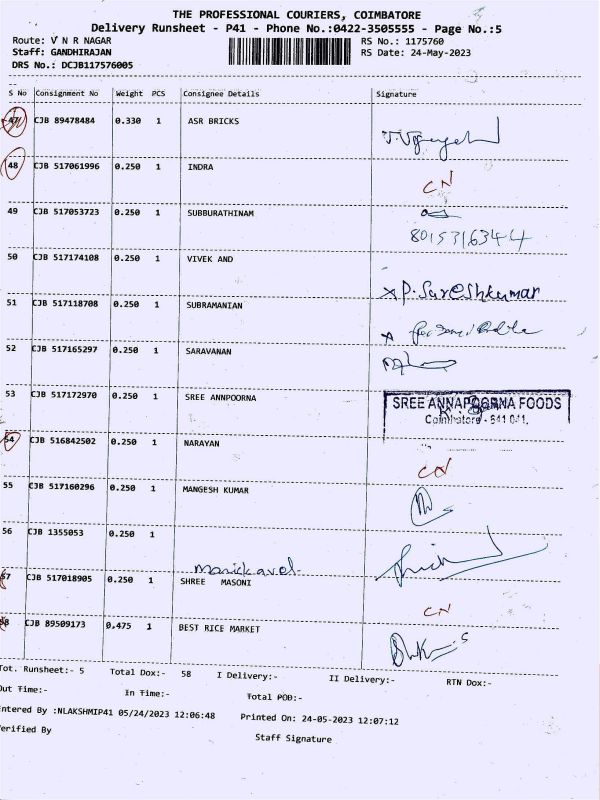 THE PROFESSIONAL COURIERS, COIMBATORE
Delivery Runsheet - P41 - Phone No.:0422-3505555 - Page No.:5
Route: V N R NAGAR RS No.: 1175760
Staff: GANDHIRAJAN RS Date: 24-May-2023
DRS No.: DCJB117576005
S No Consignment No Weight PCS Consignee Details Signature
47 CJB 89478484 0.330 1 ASR BRICKS
48 CJB 517061996 0.250 1 INDRA
CN
49 CJB 517053723 0.250 1 SUBBURATHINAM
8015316344
50 CJB 517174108 0.250 1 VIVEK AND
P. Sureshkumar
51 CJB 517118708 0.250 1 SUBRAMANIAN
52 CJB 517165297 0.250 1 SARAVANAN
53 CJB 517172970 0.250 1 SREE ANNPOORNA
SREE ANNAPOORNA FOODS
Coimbatore - 641 041.
54 CJB 516842502 0.250 1 NARAYAN
CN
55 CJB 517160296 0.250 1 MANGESH KUMAR
56 CJB 1355053 0.250 1
Manickavel
57 CJB 517018905 0.250 1 SHREE MASONI
CN
58 CJB 89509173 0,475 1 BEST RICE MARKET
Tot. Runsheet:- 5 Total Dox:- 58 I Delivery:- II Delivery:- RTN Dox:-
Out Time:- In Time:- Total POD:-
Entered By :NLAKSHMIP41 05/24/2023 12:06:48 Printed On: 24-05-2023 12:07:12
Verified By Staff Signature